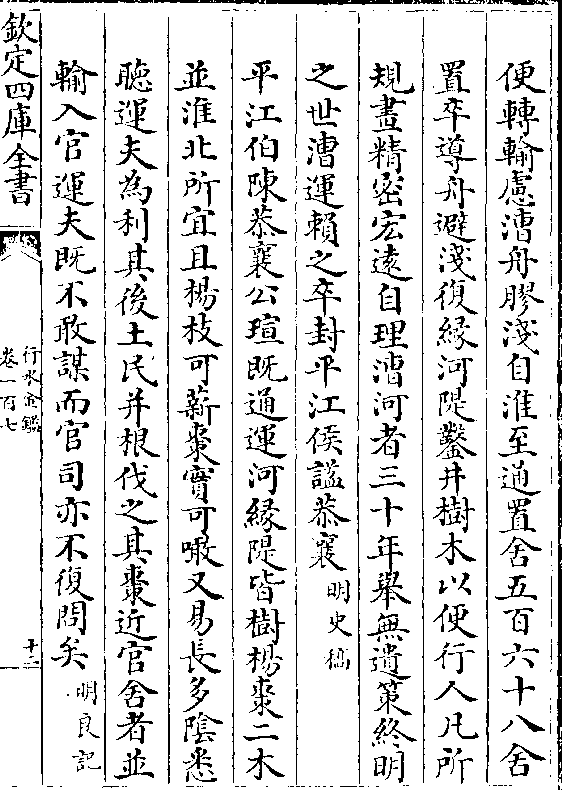 便轉輸慮漕舟膠淺自淮至通置舍五百六十八舍
置卒導舟避淺復縁河隄鑿井樹木以便行人凡所
規畫精密宏遠自理漕河者三十年舉無遺策終明
之世漕運賴之卒封平江侯諡恭襄明史稿
平江伯陳恭襄公瑄既通運河縁隄皆樹楊棗二木
並淮北所宜且楊枝可薪棗實可噉又易長多陰悉
聽運夫為利其後土民并根伐之其棗近官舍者並
輸入官運夫既不敢謀而官司亦不復問矣明良記
欽定四庫全書
行水金鑑
卷一百七
十二